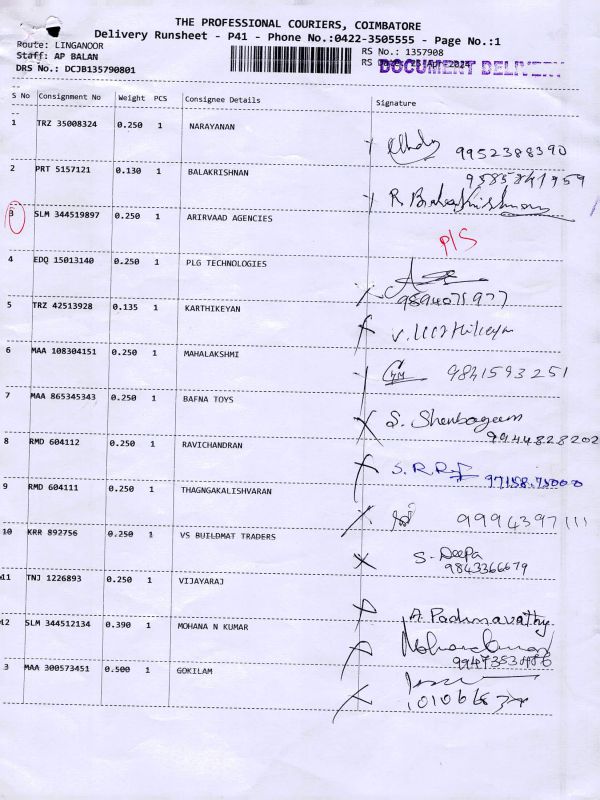 THE PROFESSIONAL COURIERS, COIMBATORE
Delivery Runsheet - P41 - Phone No.:0422-3505555 - Page No.:1
Route: LINGANOOR
Staff: AP BALAN
DRS No.: DCJB135790801
RS No.: 1357908
RS Date: 25 Apr 2024
DOCUMENT DELIVERY
S No Consignment No Weight PCS Consignee Details Signature
1 TRZ 35008324 0.250 1 NARAYANAN 9952388390
2 PRT 5157121 0.130 1 BALAKRISHNAN 9585841959
R Balakrishnan
3 SLM 344519897 0.250 1 ARIRVAAD AGENCIES P/S
4 EDQ 15013140 0.250 1 PLG TECHNOLOGIES
9894075977
5 TRZ 42513928 0.135 1 KARTHIKEYAN
6 MAA 108304151 0.250 1 MAHALAKSHMI 9841593251
7 MAA 865345343 0.250 1 BAFNA TOYS S. Shenbagam
9944828202
8 RMD 604112 0.250 1 RAVICHANDRAN
97158.75000
9 RMD 604111 0.250 1 THAGNGAKALISHVARAN 9994397111
10 KRR 892756 0.250 1 VS BUILDMAT TRADERS S. Deepa
9843366679
11 TNJ 1226893 0.250 1 VIJAYARAJ A. Padmavathy
12 SLM 344512134 0.390 1 MOHANA N KUMAR
3 MAA 300573451 0.500 1 GOKILAM